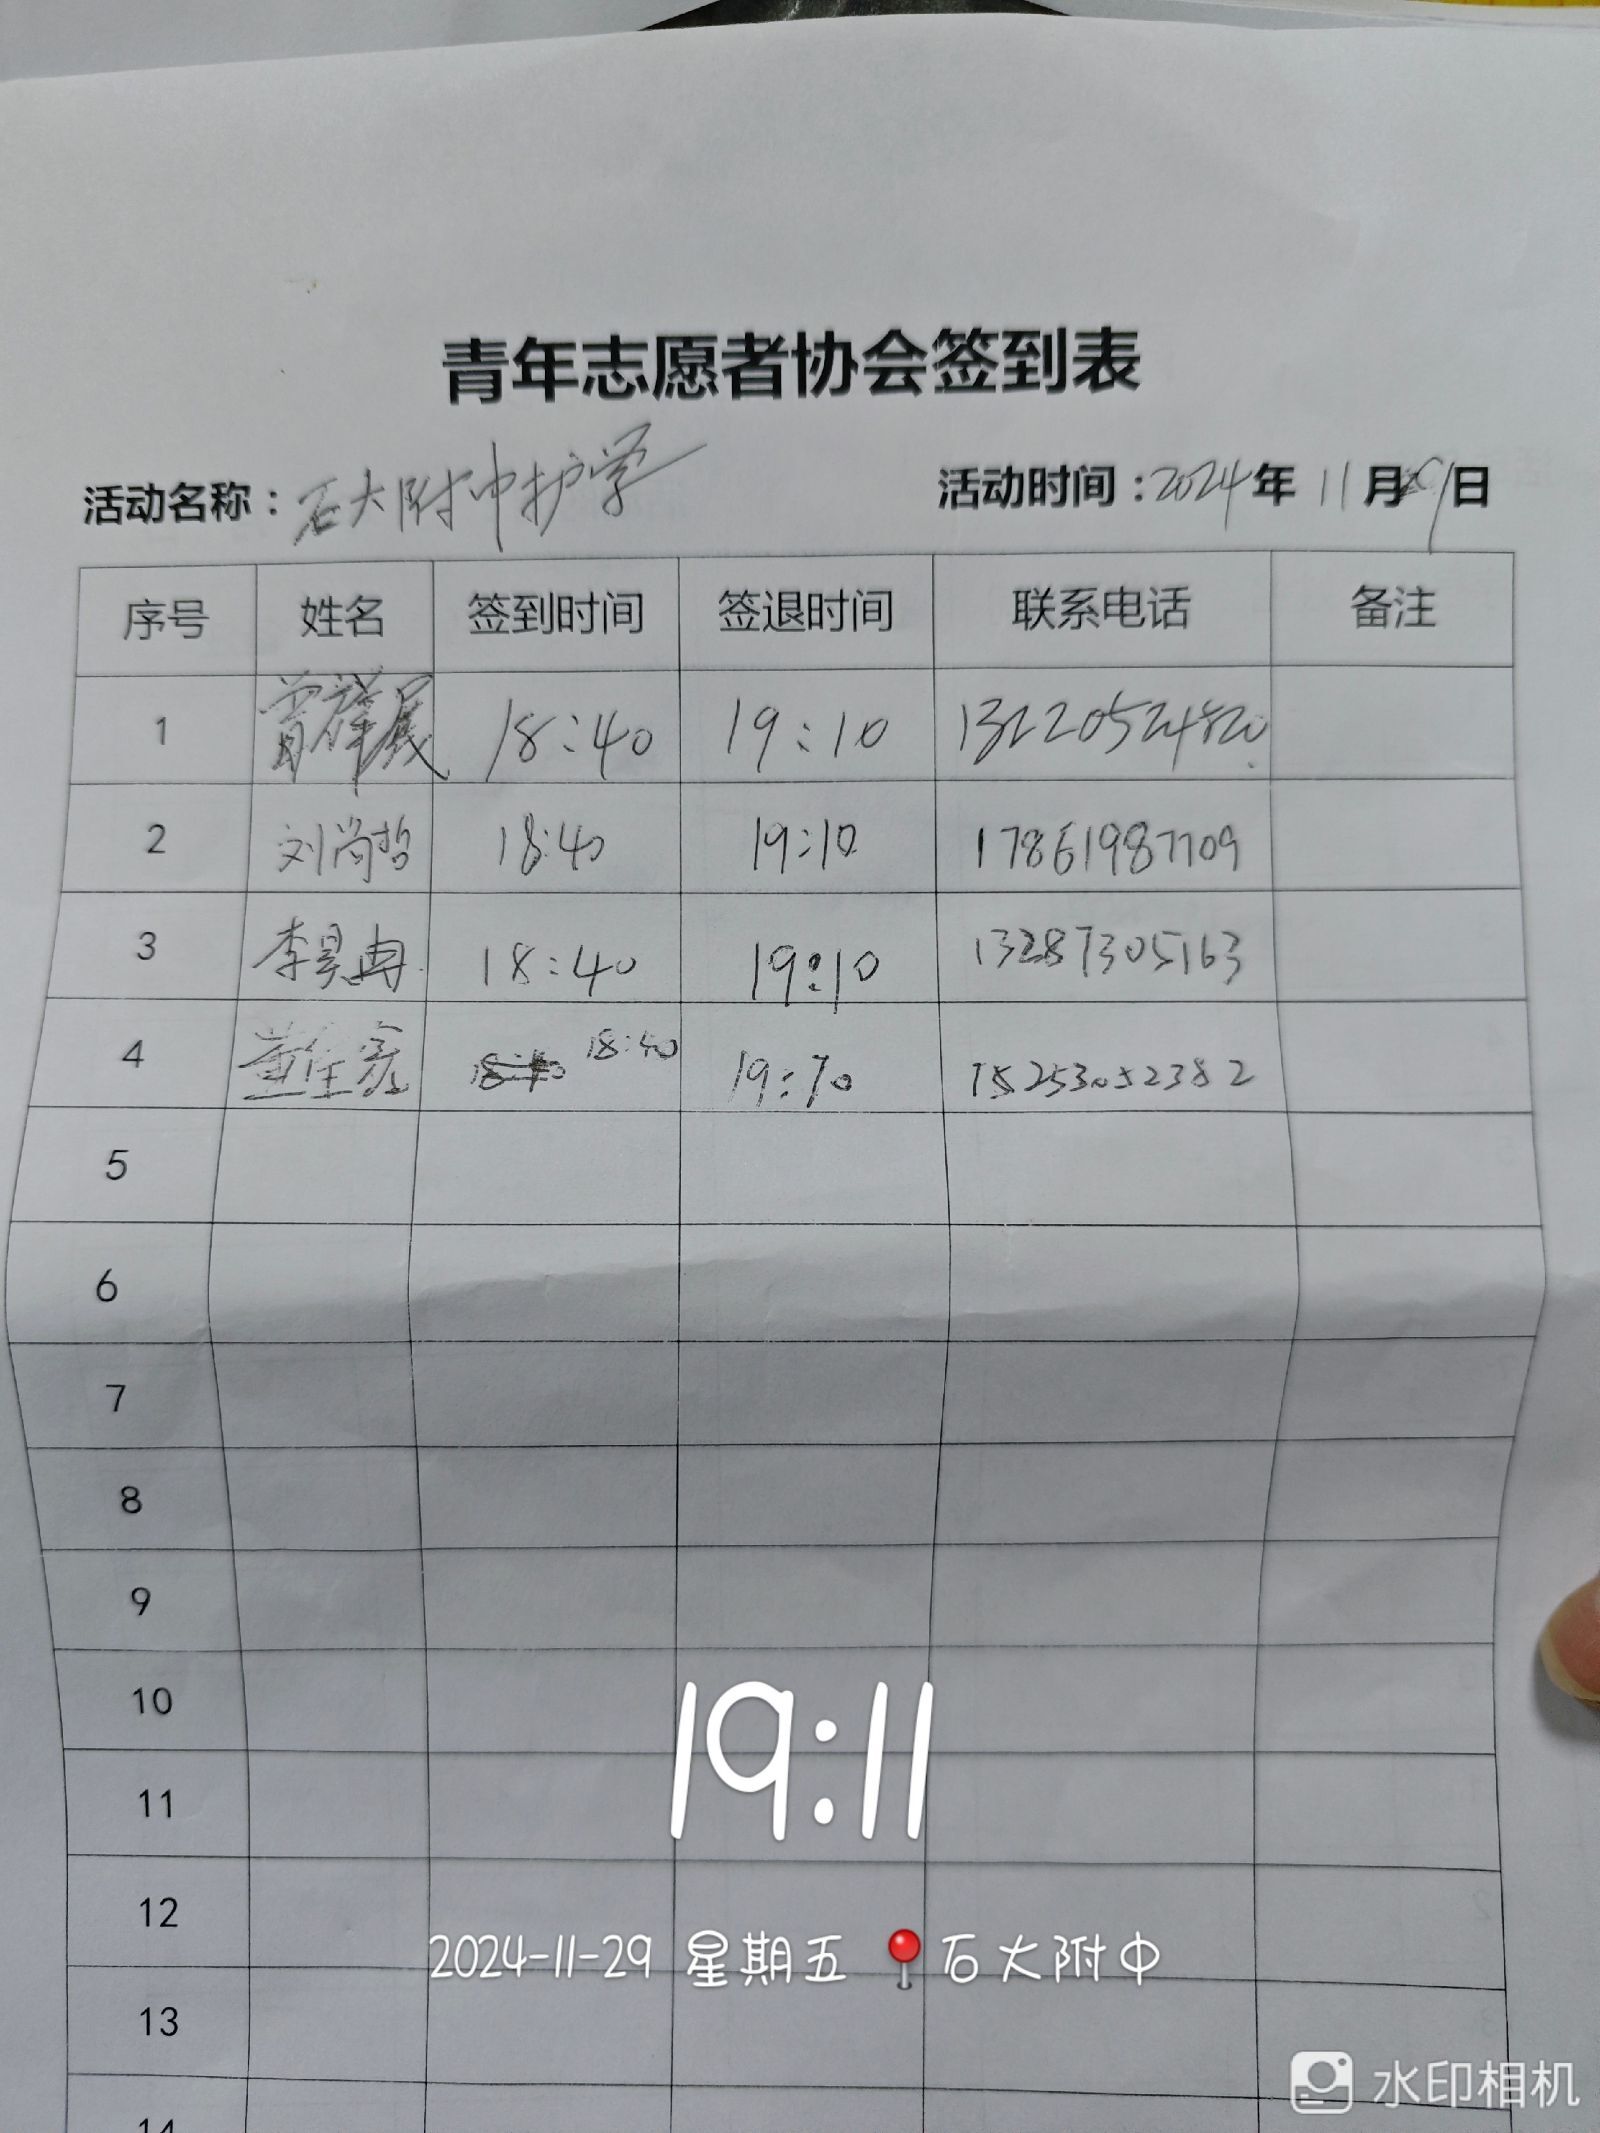 青年志愿者协会签到表
活动名称：石大附中护学 活动时间：2024年11月29日
序号 姓名 签到时间 签退时间 联系电话 备注
1 18:40 19:10 13220524820
2 刘尚哲 18:40 19:10 17861987709
3 李昊冉 18:40 19:10 13287305163
4 18:40 19:10 15253052382
5
6
7
8
9
10
19:11
11
12
2024-11-29 星期五 石大附中
13
水印相机
14